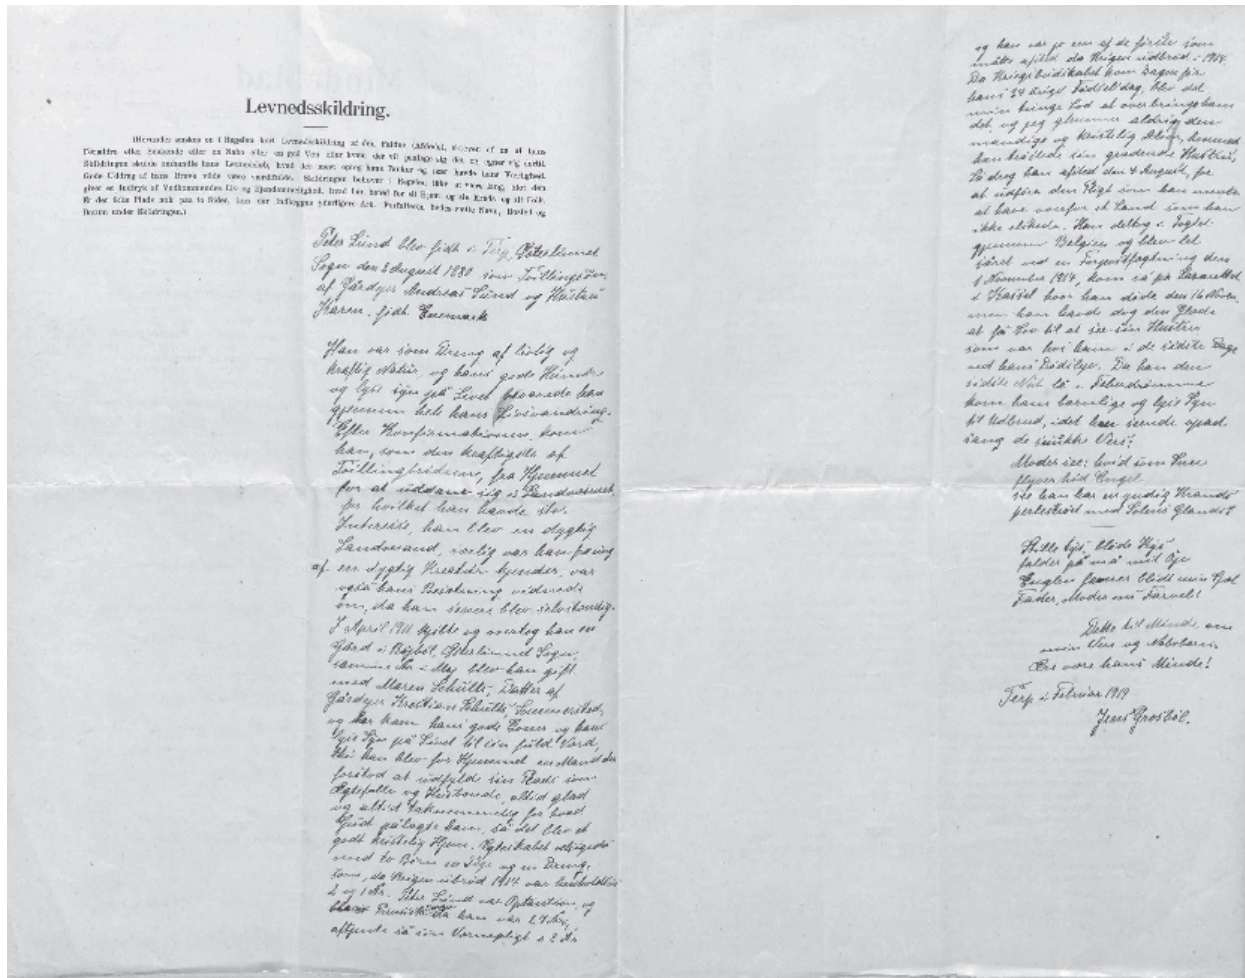 Levnedsskildring.
(Herunder ønskes en i Regelen kort Levnedsskildring af den Faldne (Afdøde), skrevet af en af hans
Forældre eller Søskende eller en Nabo eller en god Ven eller hvem der vil paatage sig det og egner sig dertil.
Skildringen skulde omhandle hans Levnedsløb, hvad der mest optog hans Tanker og især havde hans Kærlighed.
Gode Uddrag af hans Breve vilde være værdifulde. Skildringen behøver i Regelen ikke at være lang, blot den
giver en Indtryk af Vedkommendes Liv og Ejendommelighed, hvad han betød for sit Hjem og sin Kreds og sit Folk.
Er der ikke Plads nok paa to Sider, kan der indlægges yderligere Ark. Forfatteren bedes sætte Navn, Bosted og
Datum under Skildringen.)
Peter Lund blev født i Terp, Østerlinnet
Sogn den 2 August 1880 som Tvillingsøn
af Gårdejer Andreas Lund og Hustru
Karen, født Enemark
Han var som Dreng af livlig og
kraftig Natur, og hans gode Humør
og lyse Syn på Livet bevarede han
gjennem hele hans Livsvandring.
Efter Konfirmationen kom
han, som den kraftigste af
Tvillingbrødrene, fra Hjemmet
for at uddane sig i Landvæsenet,
for hvilket han havde stor
Interesse, han blev en dygtig
Landmand, især var han
af en dygtig Kreatur kjender, var
også hans Besætning vidnede
om, da han senere blev selvstændig.
I April 1911 kjøbte og overtog han en
Gård i Bøjbøl, Østerlinnet Sogn,
samme År i Maj blev han gift
med Maren Schultz, Datter af
Gårdejer Kresten Schultz Sommersted,
og her kom hans gode Evner og hans
lyse Syn på Livet til sin fuld Værd,
thi han blev for Hjemmet en Mand der
forstod at udfylde sin Plads som
Ægtefælle og Husbonde, altid glad
og altid taknemmelig for hvad
Gud pålagde Dem, så det blev et
godt kristelig Hjem. Ægteskabet velsignedes
med to Børn en Pige og en Dreng,
som, da Krigen udbrød 1914 var henholdsvis
2 og 1 År. Peter Lund var Optantsøn, og
blev Prøjsisk da han var 27 År,
aftjente så sin Værnepligt i 2 År
og han var jo en af de første som
måtte afsted da Krigen udbrød i 1914.
Da Krigsbudskabet kom Dagen før
hans 34 årige Fødselsdag, blev det
min tunge Lod at overbringe ham
det, og jeg glemmer aldrig den
mandige og kristelig Alvor, hvormed
han trøstede sin grædende Hustru,
Så drog han afsted den 4 August, for
at udføre den Pligt som han mente
at have overfor et Land som han
ikke elskede. Han deltog i Toget
gjennem Belgien og blev let
såret ved en Forpostfægtning den
1 November 1914, kom så på Lazarettet
i Kassel hvor han døde den 16 Novem.
men han havde dog den Glæde
at få Lov til at see sin Hustru
som var hos ham i de sidste Dage
ved hans Dødsleje. Da han den
sidste Nat lå i Feberdrømme
kom hans barnlige og lyse Syn
til Udbrud, idet han seende opad
sang de smukke Vers:
Moder see: hvid som Snee
flyver hid Engel
see han har en yndig Krands
perlestrøet med Solens Glands
Stille tys, bløde Kys
falder på må mit Øje
Englen favner blidt min Sjæl
Fader, Moder nu Farvel!
Dette til Minde om
min Ven og Nabobarn
Ære være hans Minde!
Terp i Februar 1919
Jens Grosbøl.